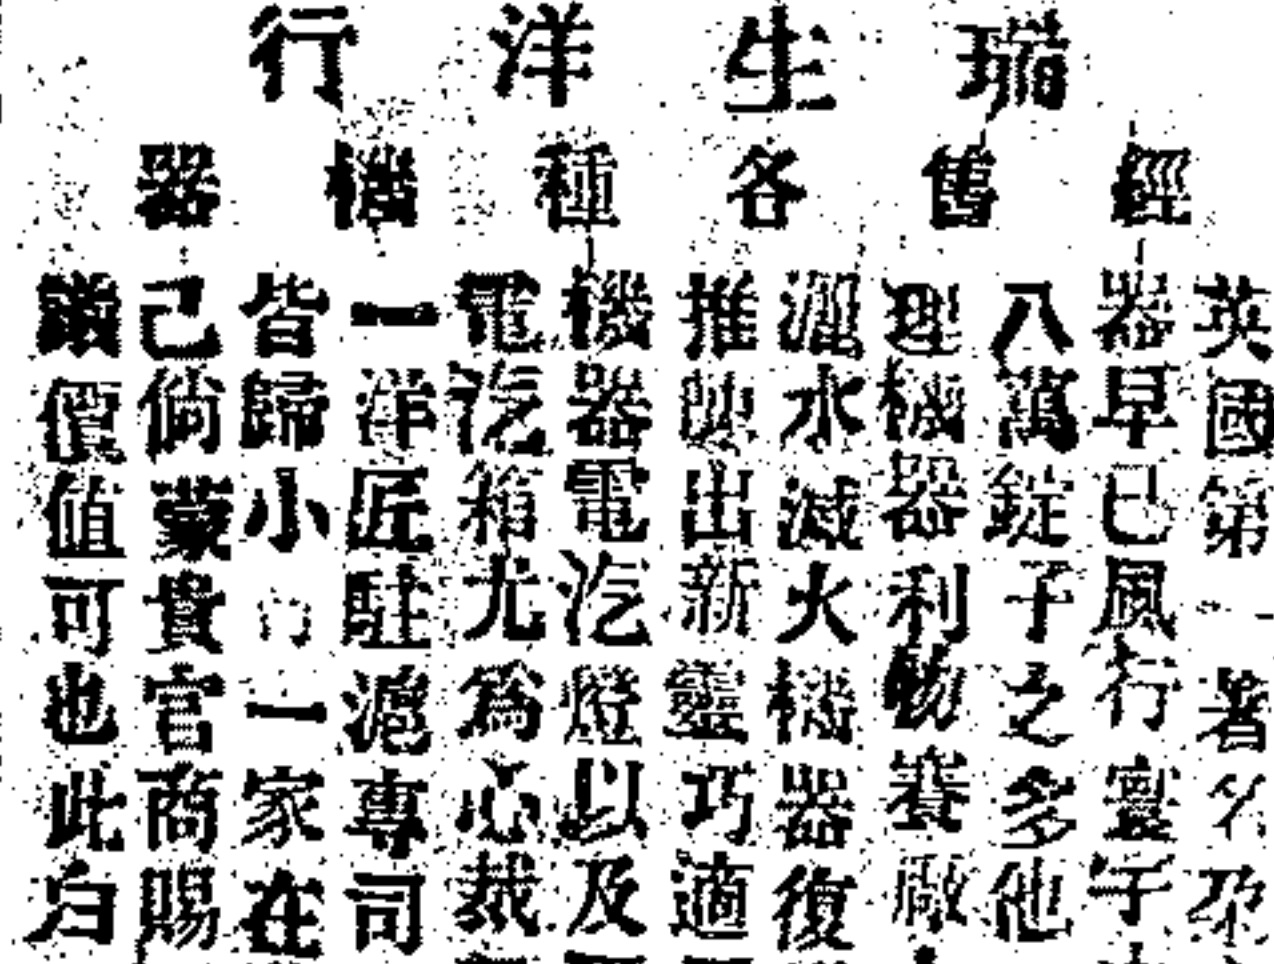 瑞生洋行
經售各種機器
英國第一著名
器早已風行寰宇
八萬錠子之多他
理機器利物賽廠
水滅火機器復
推陳出新靈巧適
機器電汽燈以及
電汽箱尤爲心裁
一洋匠駐滬專司
皆歸小一家在
己倘蒙貴官商賜
議價值可也此白